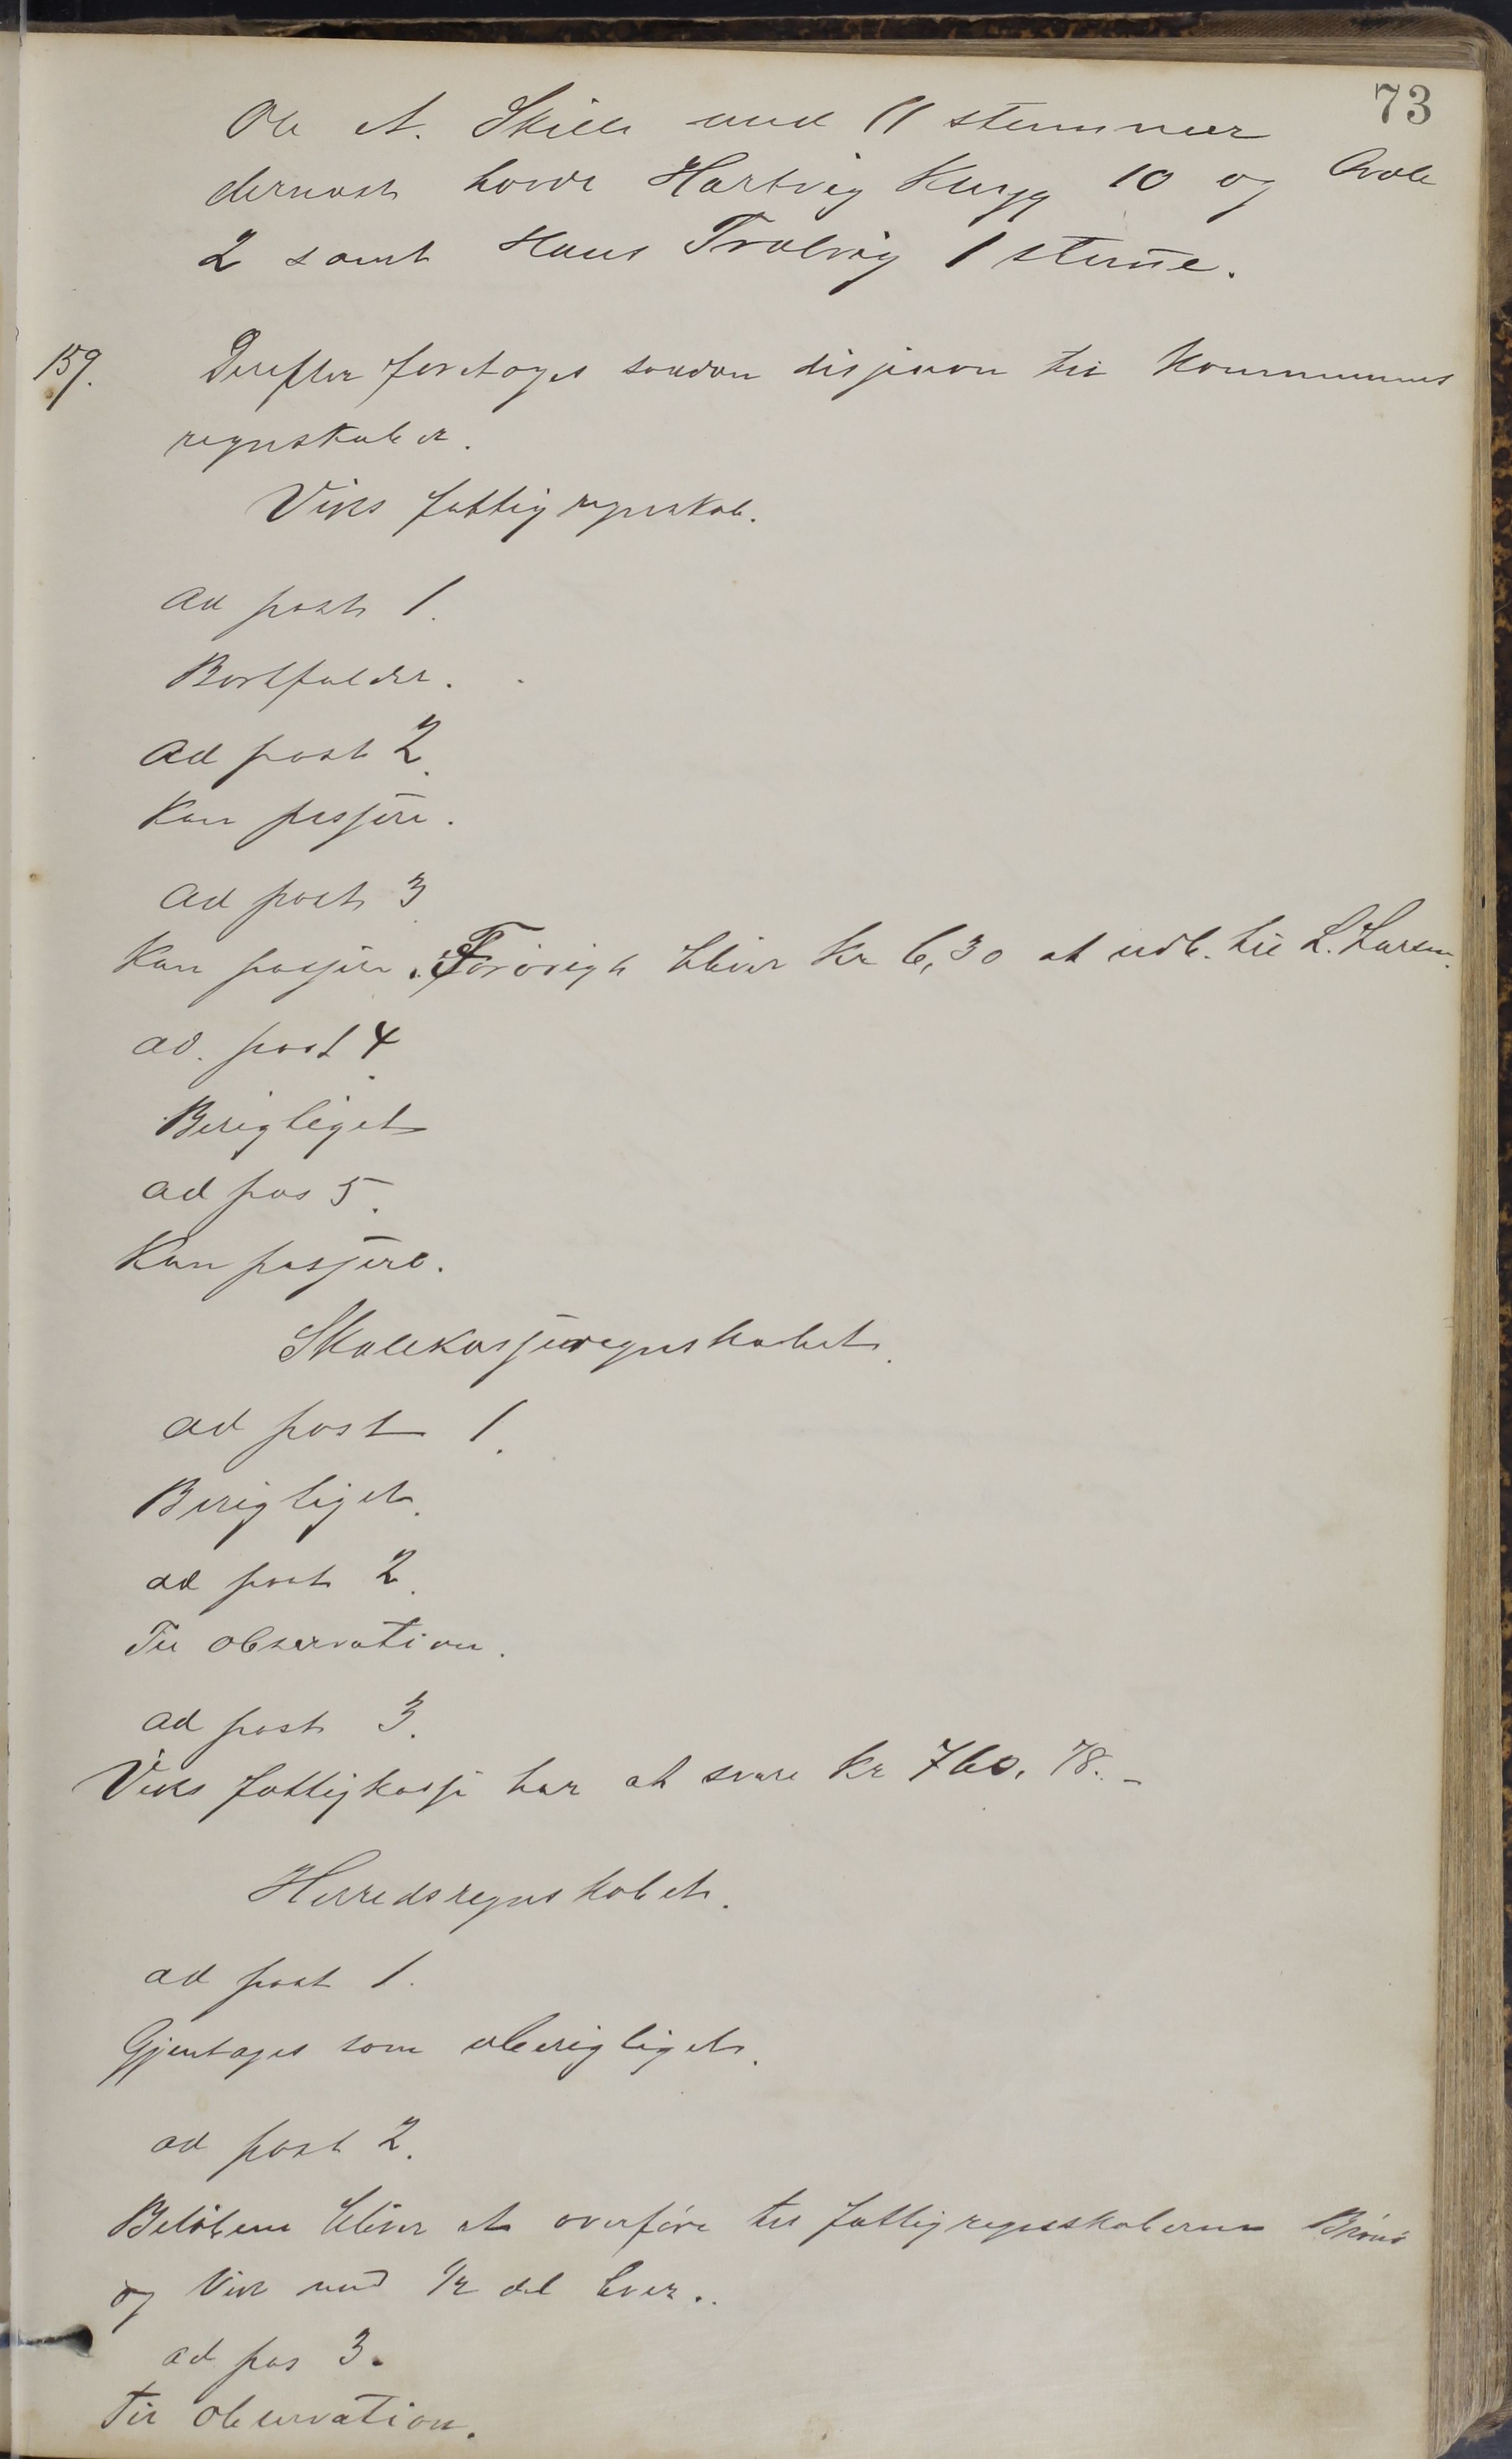 73
Ole A. Skille med 11 stemmer
dernæst havde Hartvig Kvigg 10 og
2 samt Hans Trælvig 1 stem̄e.
159. Derefter foretages saadan disission til Kommunens
regnskaber.
Viks fattigregnskab.
Ad post 1.
Bortfalder.
Ad post 2.
Kan passere.
Ad post 3
Kan passere. Forøvrigt bliver Kr 6,30 at udb. til L. Larsen.
ad. post 4.
Berigtiget
ad pos 5.
Kan passere.
Skolekasseregnskabet.
ad post 1.
Berigtiget.
ad post 2.
Til observation.
ad post 3.
Viks fattigkasse har at svare Kr 760,78.-
Herredsregnskabet.
ad post 1.
Gjentages som uberigtiget.
ad post 2.
Beløbene bliver at overføre til fattigregnskaberne Brønø
og Vik med 1/2 del hver..
ad pos 3.
Til observation.